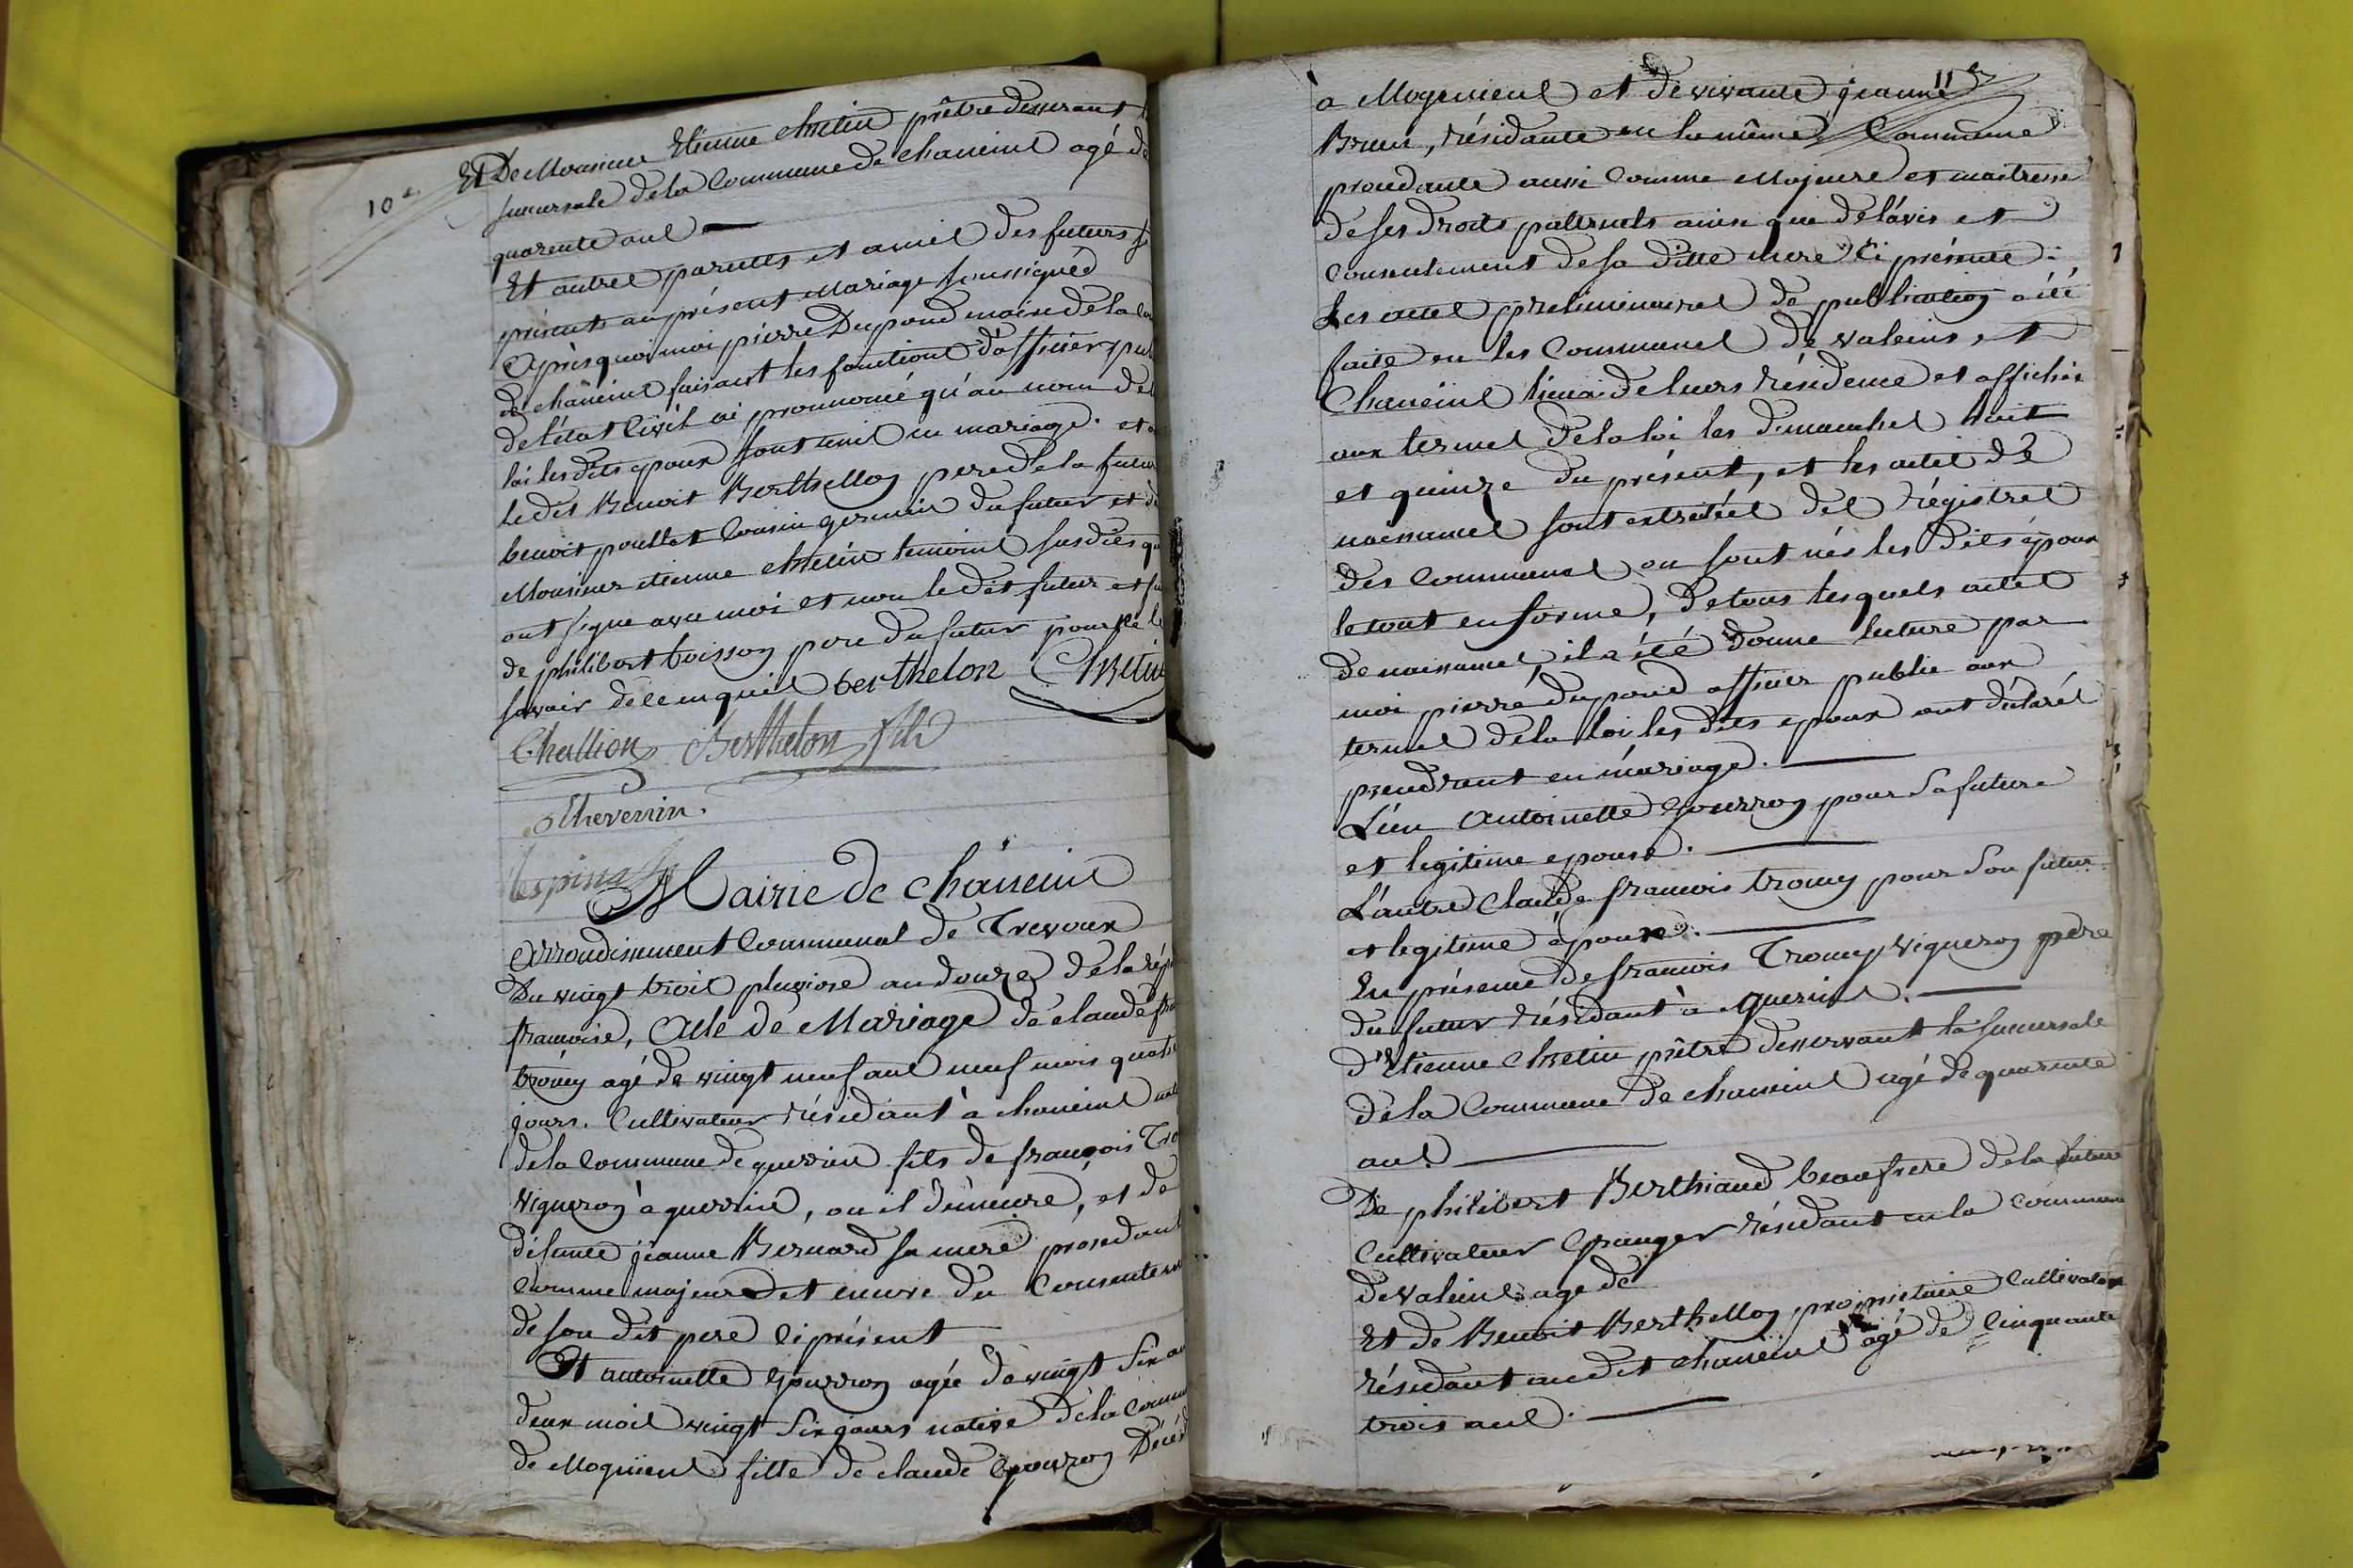 10e
Et De Monsieur Etienne Chretin prêtre desservant
succursale de la Commune de chaneins agé de
quarente ans
Et autres parents et amis des futurs
présents au présent Mariage soussignés
Après quoi moi pierre Dupond maire de la
de chaneins faisant les fonctions d'officier pub
de l'état Civil ai prononcé qu'au nom de
loi les dits époux sont unis en mariage. et
ledit Benoit Berthellon pere de la futur
benoit pouillat Cousin germain du futur et de
Monsieur etienne chretin temoins susdits
ont signé avec moi et non le dit futur et
de philibert boisson pere du futur pour ne le
savoir de ce enquis berthelon Chretin
Challion Berthelon fils
Thevenin.
Lespinasse
Mairie de chaneins
Arrondissement Communal de Trevoux
Du vingt trois pluviose an douze de la rép
française, Acte de Mariage de claude fra
troncy agé de vingt neuf ans neuf mois quatre
jours. Cultivateur résidant à chaneins
de la Commune de guerrins fils de françois Tro
Vigneron à guerrins, ou il demeure, et de
défunte jeanne Bernard sa mere procedant
Comme majeur et encore du Consentem
de son dit pere ci présent
Et antoinette gourron agée de vingt six
deux mois vingt six jours native de la Comm
de Mogneins fille de claude gourron Décéd
11e
à Mogneneins et de vivante jeanne
Brun, résidante en la même Commune
procedante aussi Comme Majeure et maitresse
de ses droits patternels ainsi que de l'avis et
consentement de sa ditte mere ci présente.
Les actes preliminaires de publication a été
faite en les Communes de valeins et
Chaneins lieux de leurs résidence et affichés
aux termes de la loi les dimanches huit
et quinze du présent, et les actes de
naissances sont extraités des régistres
des Communes ou sont nés les dits époux
le tout en forme, de tous lesquels actes
de naissances, il a été donné lecture par
moi pierre dupond officier public aux
termes de la loi les dits époux ont déclarés
prendrent en mariage.
L'un Antoinette gourron pour Sa future
et legitime épouse.
L'autre Claude francois troncy pour Son futur
et legitime époux.
En présence de francois Troncy Vigneron pere
du futur résidant à guerins.
d'Etienne Chretin prêtre desservant la succursale
de la Commune de chaneins agé de quarente
ans
De philibert Berthiaud beaufrere de la future
Cultivateur Granger résidant en la commune
de Valeins age de
Et de Benoit Berthellon proprietaire Cultivateur
résidant audit chaneins agé de Cinquante
trois ans.